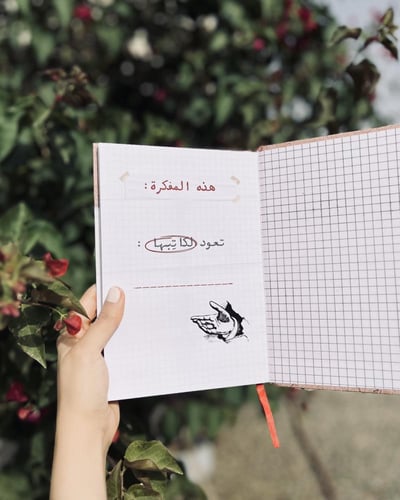 هذه المفكرة :
تعود لكاتِبها :